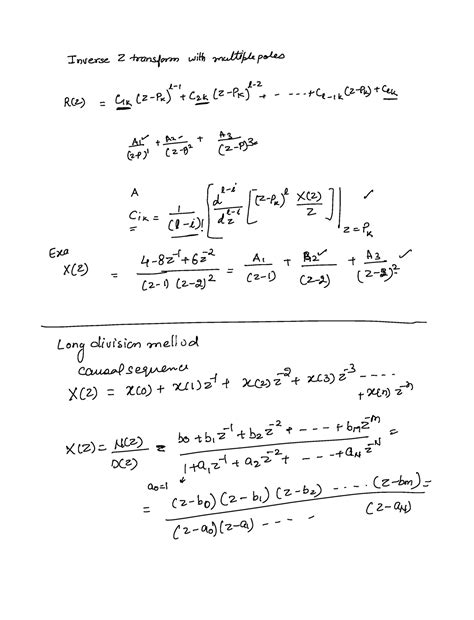 Inverse Z transform with multiple poles
R(z) = C1k (z-Pk)^l-1 + C2k (z-Pk)^l-2 + - ---- + Cl-1k (z-Pk) + Clk
A1/(z-P)^1 + A2/(z-P)^2 + A3/(z-P)^3
A
Cik = 1/(l-i)! [d^l-i/dz^l-i [(z-Pk)^l X(z)/z]] | z=Pk ✓
Exa
X(z) = 4-8z^-1+6z^-2/(z-1)(z-2)^2 = A1/(z-1) + A2/(z-2) + A3/(z-2)^2 ✓
Long division method
causal sequence
X(z) = x(0) + x(1)z^-1 + x(2)z^-2 + x(3)z^-3 ----
+x(n)z^-n
X(z) = N(z)/D(z) = b0+b1z^-1+b2z^-2+ - - - +bMz^-M/1+a1z^-1+a2z^-2+ - - - +aNz^-N =
a0=1
= (z-b0)(z-b1)(z-b2) ..... (z-bm)/(z-a0)(z-a1) - - - - (z-aN) =